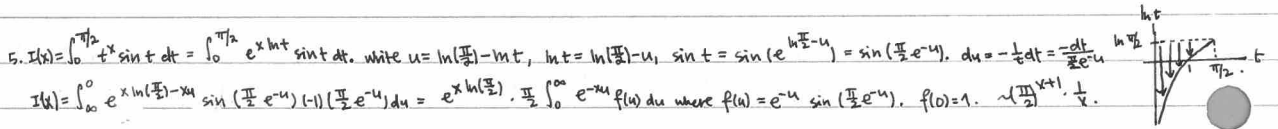 5. I(x) = ∫_0^{π/2} t^x sin t dt = ∫_0^{π/2} e^{x ln t} sin t dt. write u = ln(π/2) - ln t, ln t = ln(π/2) - u, sin t = sin(e^{ln π/2 - u}) = sin(π/2 e^{-u}). du = -1/t dt = -dt/(π/2 e^{-u})
I(x) = ∫_∞^0 e^{x ln(π/2) - xu} sin(π/2 e^{-u}) (-1) (π/2 e^{-u}) du = e^{x ln(π/2)} · π/2 ∫_0^∞ e^{-xu} f(u) du where f(u) = e^{-u} sin(π/2 e^{-u}). f(0) = 1. ~ (π/2)^{x+1} · 1/x.
ln t
ln π/2
1
π/2
t